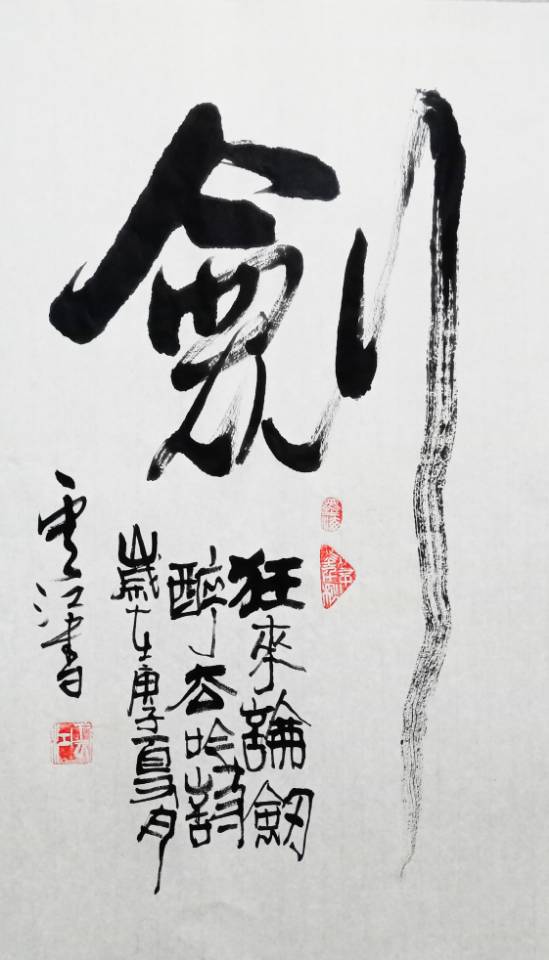 劍
狂來論劍
醉去吟詩
歲在庚子夏月
雲江書